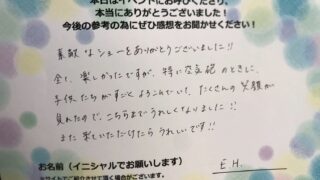 本日はイベントにお呼びくださり、
本当にありがとうございました！
今後の参考の為にぜひ感想をお聞かせください！
素敵なショーをありがとうございました!!
全て楽しかったですが、特に空気砲のときに、
子供たちがすごくよろこんでいて、たくさんの笑顔が
見れたので、こちらまでうれしくなりました!!
また来ていただけたらうれしいです!!
お名前（イニシャルでお願いします）
E.H.
※サイトでご紹介させて頂く場合がございます。